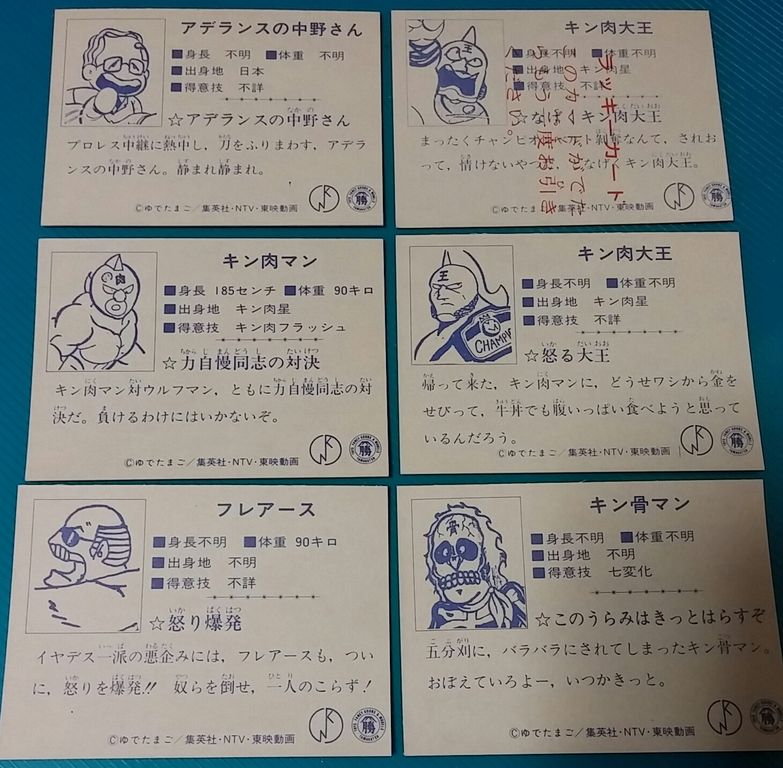 アデランスの中野さん
■身長 不明 ■体重 不明
■出身地 日本
■得意技 不詳
☆アデランスの中野さん
プロレス中継に熱中し，刀をふりまわす，アデラ
ンスの中野さん。静まれ静まれ。
©ゆでたまご／集英社・NTV・東映動画
勝
キン肉大王
■身長不明 ■体重不明
■出身地 キン肉星
■得意技 不詳
☆なげくキン肉大王
まったくチャンピオンベルト剥奪なんて，されお
って，情けないやつと，なげくキン肉大王。
©ゆでたまご／集英社・NTV・東映動画
勝
ラッキーカード
このカードがでた
らもう一度お引き
ください。
肉
キン肉マン
■身長 185センチ ■体重 90キロ
■出身地 キン肉星
■得意技 キン肉フラッシュ
☆力自慢同志の対決
キン肉マン対ウルフマン，ともに力自慢同志の対
決だ。負けるわけにはいかないぞ。
©ゆでたまご／集英社・NTV・東映動画
勝
王
CHAMPI
キン肉大王
■身長不明 ■体重不明
■出身地 キン肉星
■得意技 不詳
☆怒る大王
帰って来た，キン肉マンに，どうせワシから金を
せびって，牛丼でも腹いっぱい食べようと思って
いるんだろう。
©ゆでたまご／集英社・NTV・東映動画
勝
フレアース
■身長不明 ■体重 90キロ
■出身地 不明
■得意技 不詳
☆怒り爆発
イヤデス一派の悪企みには，フレアースも，つい
に，怒りを爆発!! 奴らを倒せ，一人のこらず！
©ゆでたまご／集英社・NTV・東映動画
勝
骨
キン骨マン
■身長不明 ■体重不明
■出身地 不明
■得意技 七変化
☆このうらみはきっとはらすぞ
五分刈に，バラバラにされてしまったキン骨マン。
おぼえていろよー，いつかきっと。
©ゆでたまご／集英社・NTV・東映動画
勝